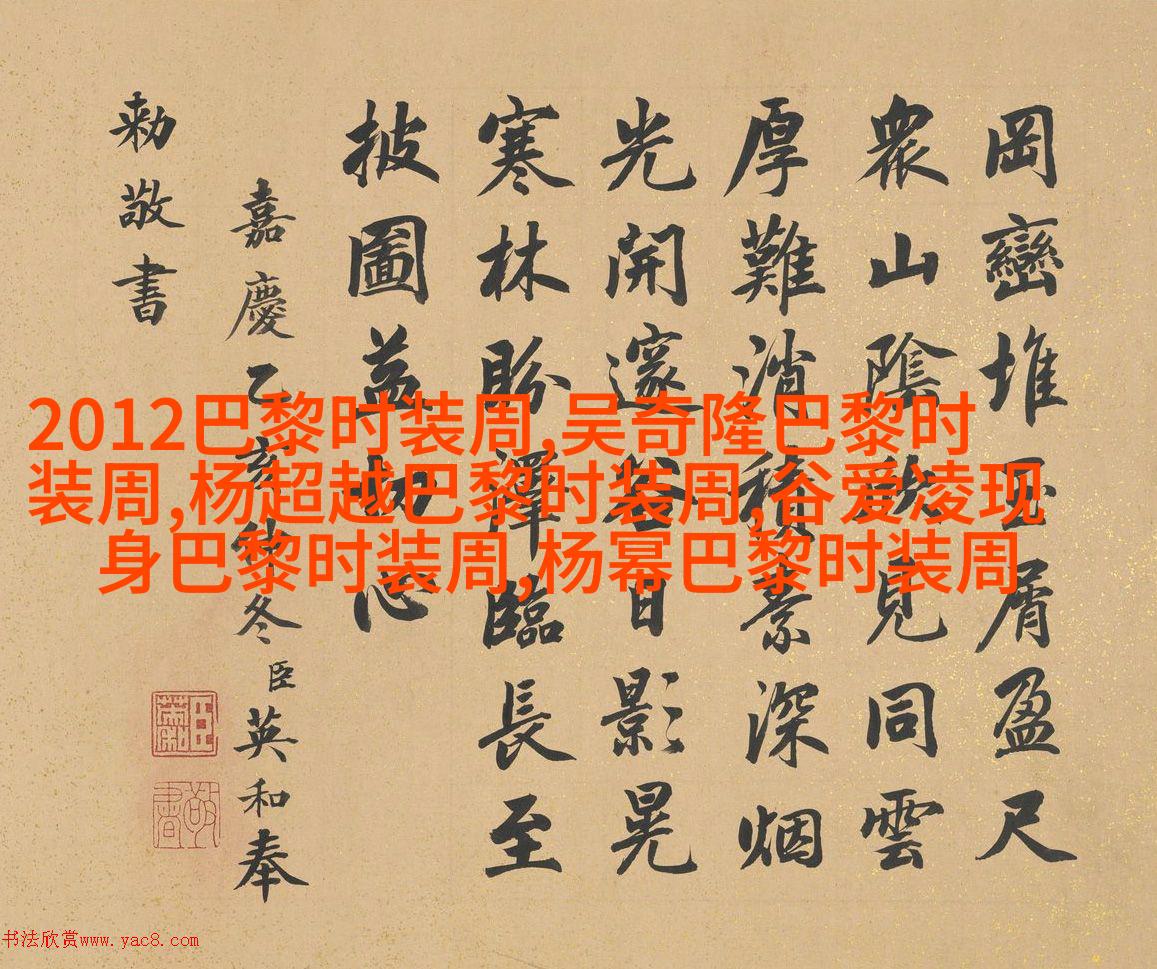 岡巒堆玉屑盈尺
衆山陰見同雲
厚難消積素深烟
光開邃谷日影晃
寒林盼澤臨長至
披圖益心
嘉慶乙亥仲冬臣英和奉
勅敬書
2012巴黎时装周,吴奇隆巴黎时
装周,杨超越巴黎时装周,谷爱凌现
身巴黎时装周,杨幂巴黎时装周
敬書
书法欣赏www.yac8.com